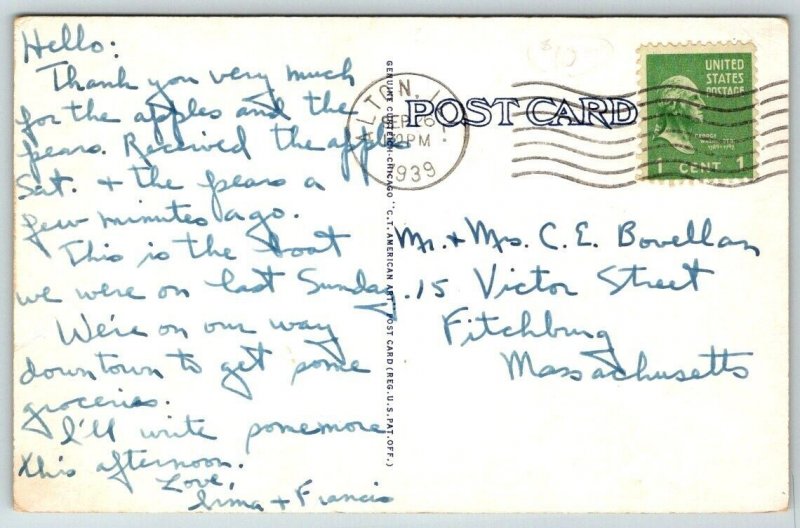 Hello:
Thank you very much
for the apples and the
pears. Received the apples
Sat. + the pears a
few minutes ago.
This is the boat
we were on last Sunday.
We're on our way
downtown to get some
groceries.
I'll write some more
this afternoon.
Love,
Irma + Francis
GENUINE CURTEICH-CHICAGO "C.T. AMERICAN ART" POST CARD (REG. U.S. PAT. OFF.)
ALTON, I
SEP 26
PM
1939
POST CARD
UNITED
STATES
POSTAGE
GEORGE
WASHINGTON
1 CENT 1
Mr. + Mrs. C. E. Bovellan
15 Victor Street
Fitchburg
Massachusetts